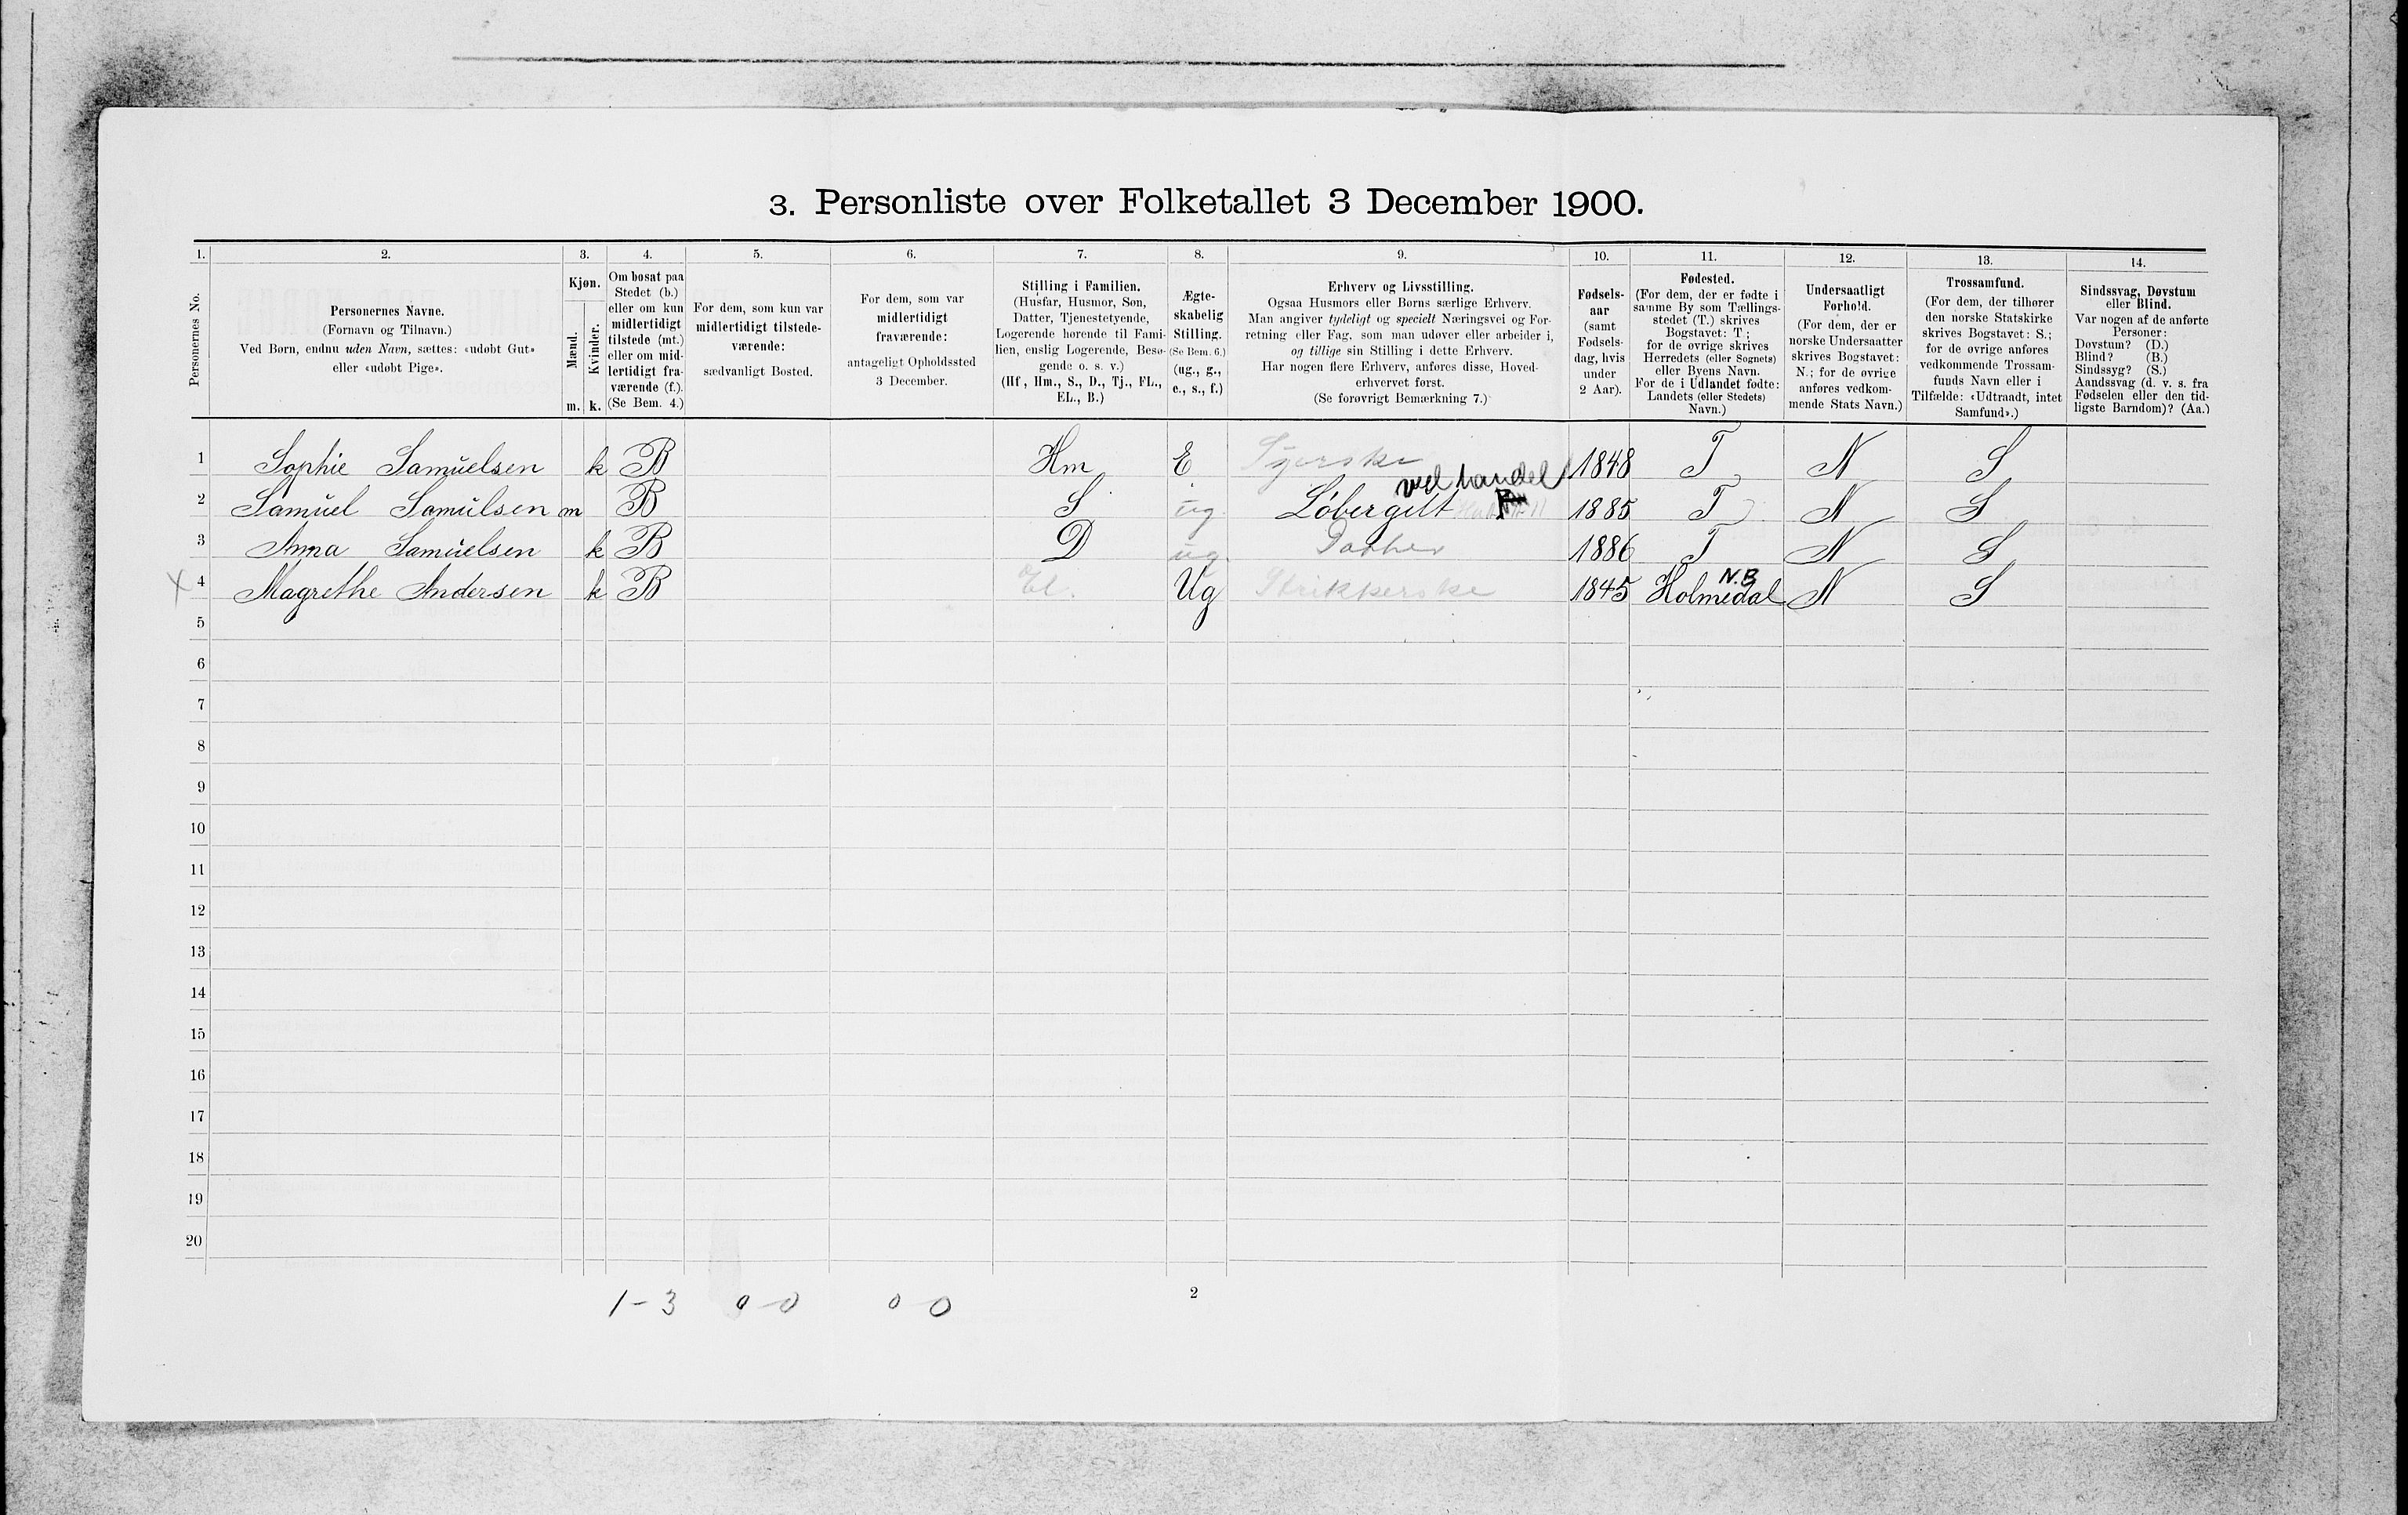 3. Personliste over Folketallet 3 December 1900.
1. 2. 3. 4. 5. 6. 7. 8. 9. 10. 11. 12. 13. 14.
Personernes No.
Personernes Navne.
(Fornavn og Tilnavn.)
Ved Børn, endnu uden Navn, sættes: «udøbt Gut»
eller «udøbt Pige».
Kjøn.
Mænd.
Kvinder.
m. k.
Om bosat paa
Stedet (b.)
eller om kun
midlertidigt
tilstede (mt.)
eller om mid-
lertidigt fra-
værende (f.).
(Se Bem. 4.)
For dem, som kun var
midlertidigt tilstede-
værende:
sædvanligt Bosted.
For dem, som var
midlertidigt
fraværende:
antageligt Opholdssted
3 December.
Stilling i Familien.
(Husfar, Husmor, Søn,
Datter, Tjenestetyende,
Logerende hørende til Fami-
lien, enslig Logerende, Besø-
gende o. s. v.)
(Hf, Hm., S., D., Tj., FL.,
EL., B.)
Ægte-
skabelig
Stilling.
(Se Bem. 6.)
(ug., g.,
e., s., f.)
Erhverv og Livsstilling.
Ogsaa Husmors eller Børns særlige Erhverv.
Man angiver tydeligt og specielt Næringsvei og For-
retning eller Fag, som man udøver eller arbeider i,
og tillige sin Stilling i dette Erhverv.
Har nogen flere Erhverv, anføres disse, Hoved-
erhvervet først.
(Se forøvrigt Bemærkning 7.)
Fødsels-
aar
(samt
Fødsels-
dag, hvis
under
2 Aar).
Fødested.
(For dem, der er fødte i
samme By som Tællings-
stedet (T.) skrives
Bogstavet: T;
for de øvrige skrives
Herredets (eller Sognets)
eller Byens Navn.
For de i Udlandet fødte:
Landets (eller Stedets)
Navn.)
Undersaatligt
Forhold.
(For dem, der er
norske Undersaatter
skrives Bogstavet:
N.; for de øvrige
anføres vedkom-
mende Stats Navn.)
Trossamfund.
(For dem, der tilhører
den norske Statskirke
skrives Bogstavet: S.;
for de øvrige anføres
vedkommende Trossam-
funds Navn eller i
Tilfælde: «Udtraadt, intet
Samfund».)
Sindssvag, Døvstum
eller Blind.
Var nogen af de anførte
Personer:
Døvstum? (D.)
Blind? (B.)
Sindssyg? (S.)
Aandssvag (d. v. s. fra
Fødselen eller den tid-
ligste Barndom)? (Aa.)
1 Sophie Samuelsen k B Hm E Syerske 1848 T N S
ved handel
2 Samuel Samulsen m B S ug. Løbergut 1885 T N S
3 Anna Samuelsen k B D ug 1886 T N S
N.B
X 4 Magrethe Andersen k B El. Ug Strikkerske 1845 Holmedal N S
5
6
7
8
9
10
11
12
13
14
15
16
17
18
19
20
1-3 0-0 0 0
2